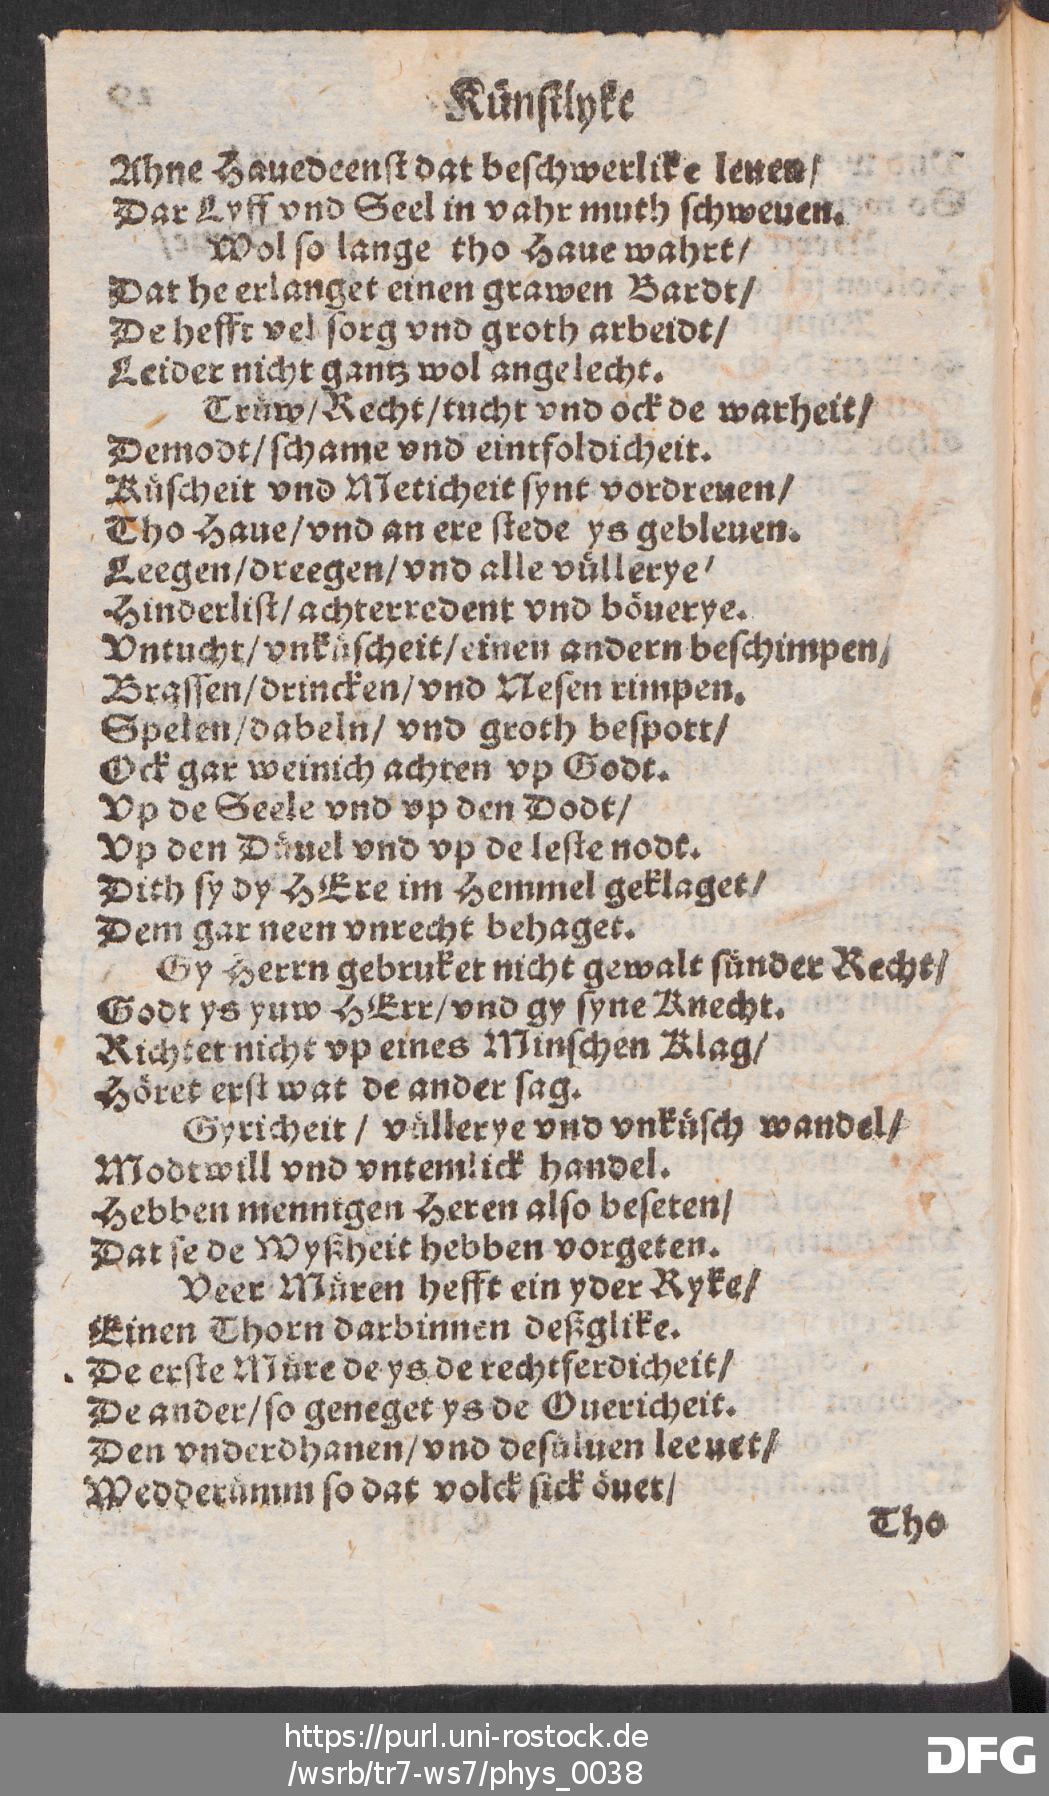 Künstlyke
Ahne Hauedeenst dat beschwerlike leuen/
Dar Lyff vnd Seel in vahr muth schweuen.
Wol so lange tho Haue wahrt/
Dat he erlanget einen grawen Bardt/
De hefft vel sorg vnd groth arbeidt/
Leider nicht gantz wol angelecht.
Trüw/ Recht/ tucht vnd ock de warheit/
Demodt/ schame vnd eintfoldicheit.
Küscheit vnd Meticheit synt vordreuen/
Tho Haue/ vnd an ere stede ys gebleuen.
Leegen/ dreegen/ vnd alle vüllerye/
Hinderlist/ achterredent vnd böuerye.
Vntucht/ vnküscheit/ einen andern beschimpen/
Brassen/ drincken/ vnd Nesen rimpen.
Spelen/ dabeln/ vnd groth bespott/
Ock gar weinich achten vp Godt.
Vp de Seele vnd vp den Dodt/
Vp den Düuel vnd vp de leste nodt.
Dith sy dy HEre im Hemmel geklaget/
Dem gar neen vnrecht behaget.
Gy Herrn gebruket nicht gewalt sünder Recht/
Godt ys yuw HErr/ vnd gy syne Knecht.
Richtet nicht vp eines Minschen Klag/
Höret erst wat de ander sag.
Gyricheit/ vüllerye vnd vnküsch wandel/
Modtwill vnd vntemlick handel.
Hebben menntgen Heren also beseten/
Dat se de Wyßheit hebben vorgeten.
Veer Müren hefft ein yder Ryke/
Einen Thorn darbinnen deßglike.
De erste Müre de ys de rechtferdicheit/
De ander/ so geneget ys de Ouericheit.
Den vnderdhanen/ vnd desüluen leeuet/
Wedderümm so dat volck sick öuet/
Tho
https://purl.uni-rostock.de
/wsrb/tr7-ws7/phys_0038
DFG